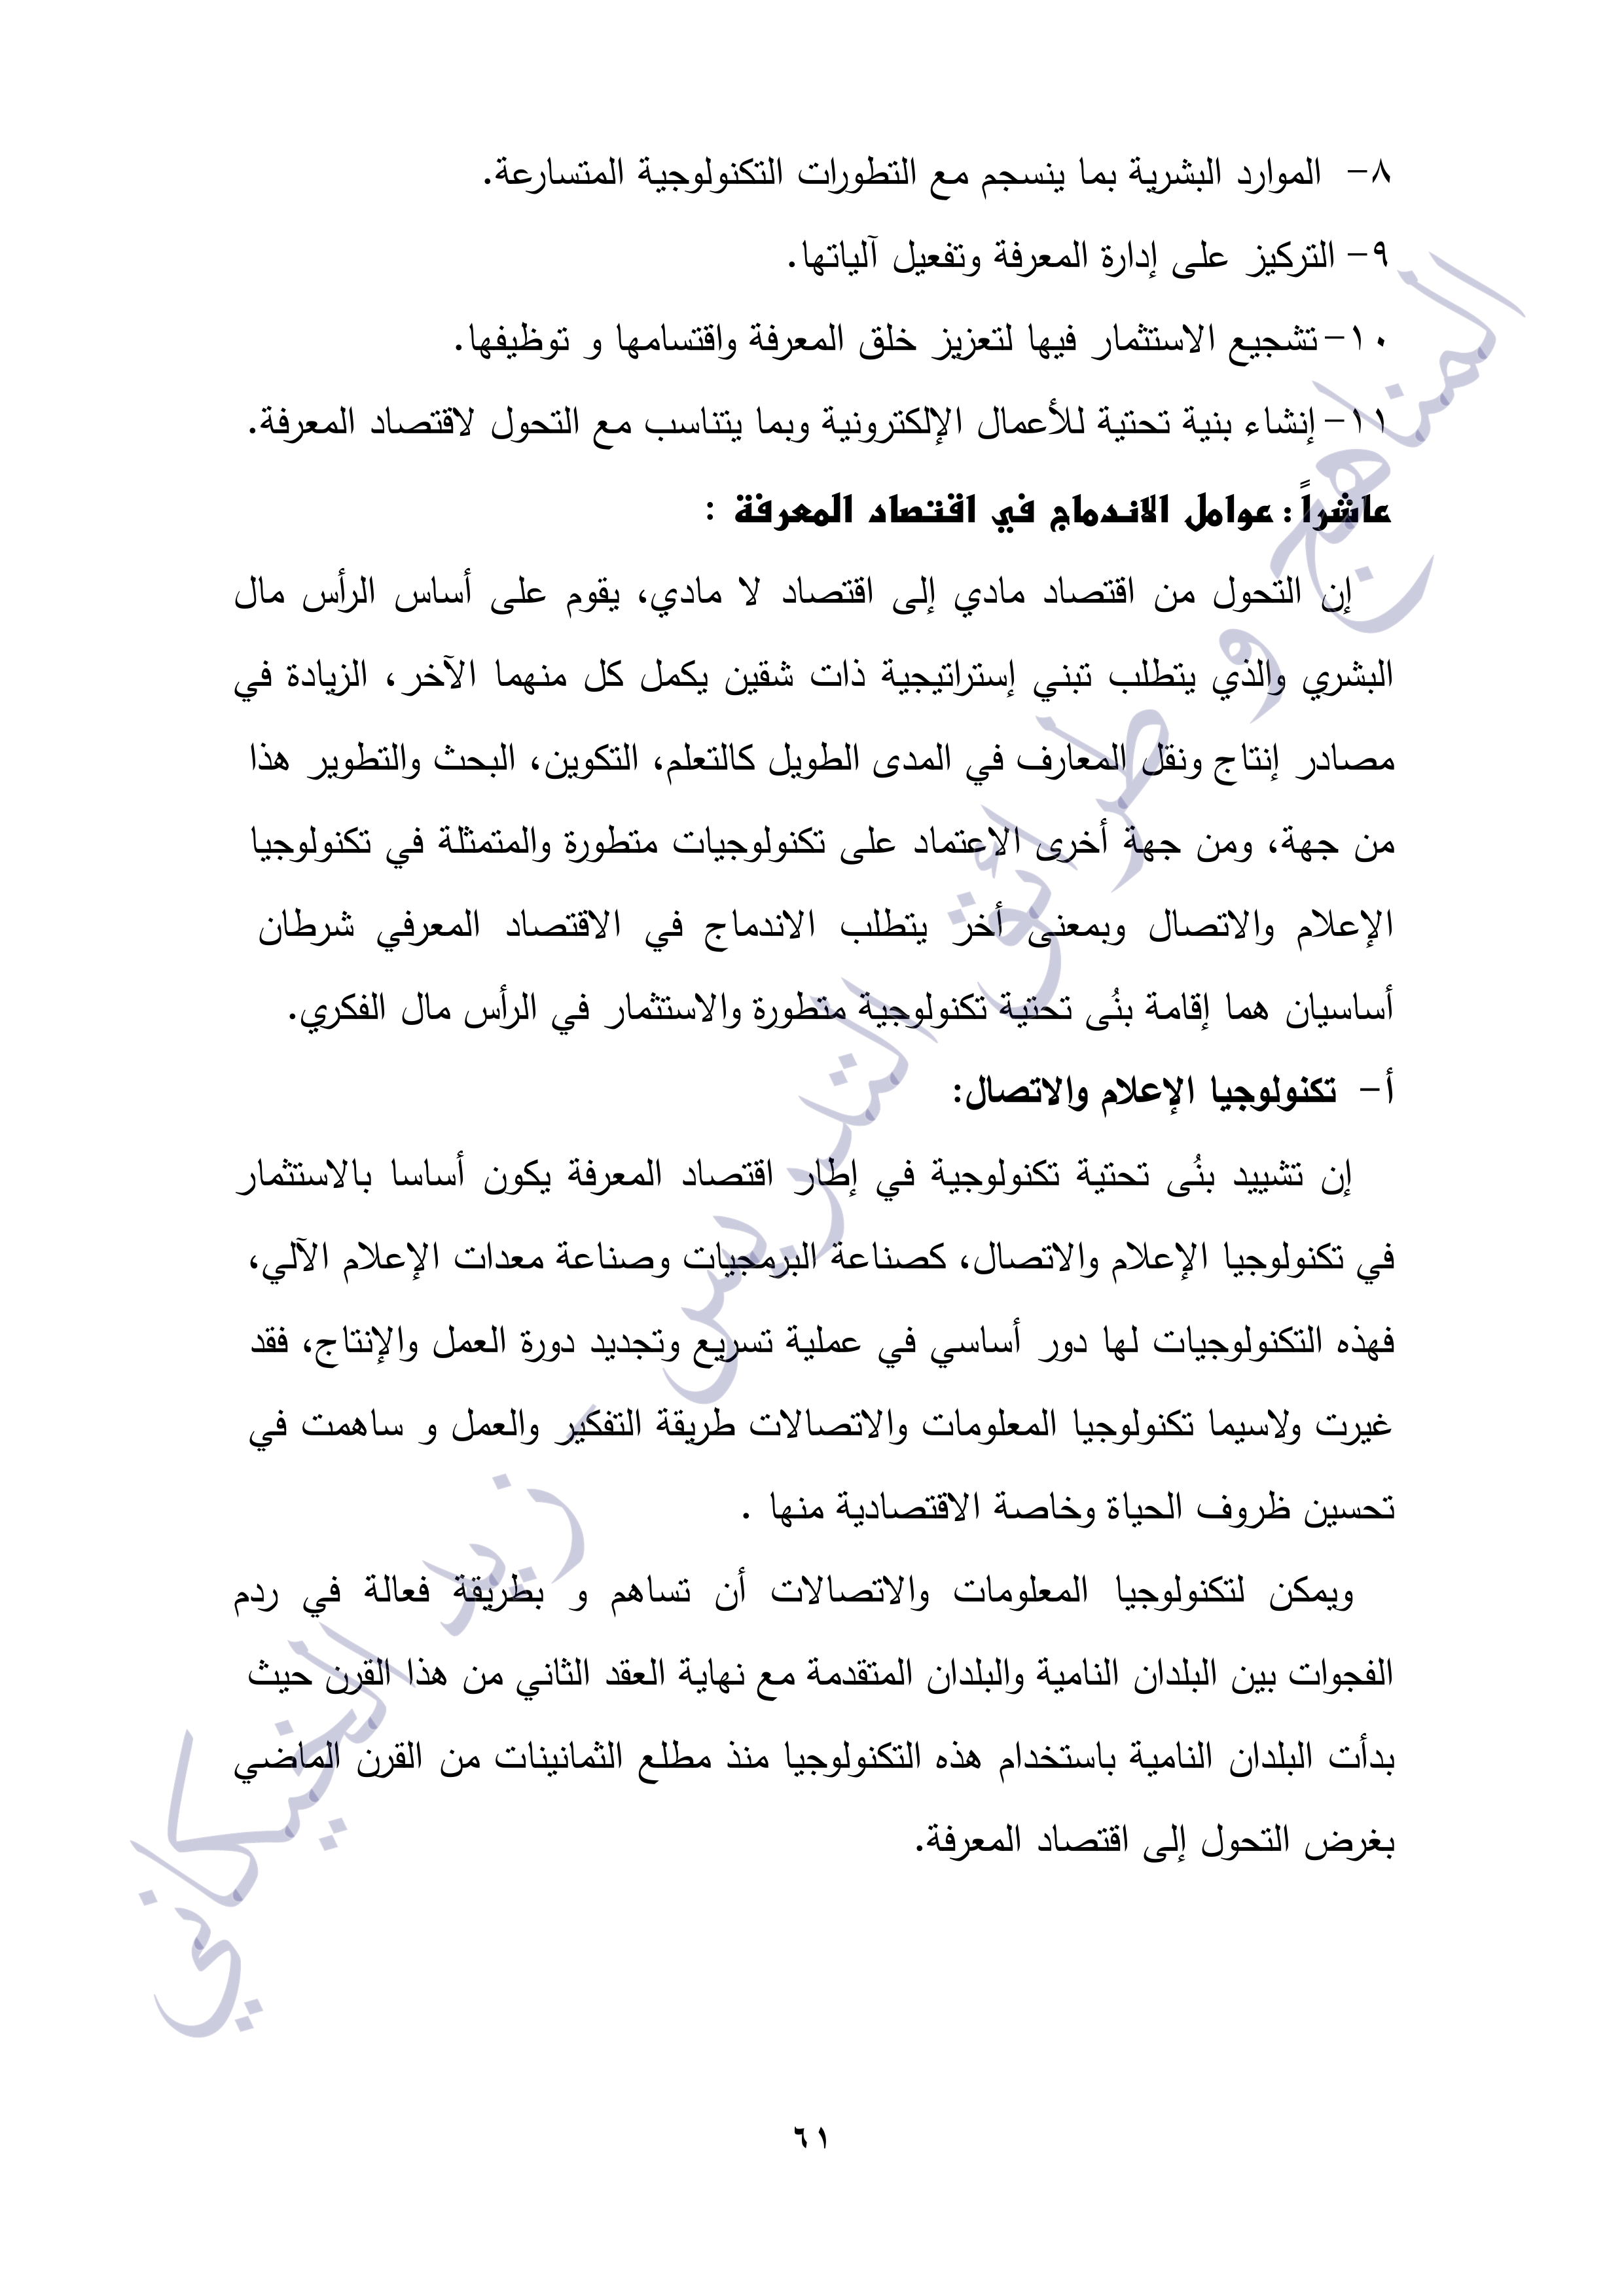 ٨- الموارد البشرية بما ينسجم مع التطورات التكنولوجية المتسارعة.
٩- التركيز على إدارة المعرفة وتفعيل آلياتها.
١٠- تشجيع الاستثمار فيها لتعزيز خلق المعرفة واقتسامها و توظيفها.
١١- إنشاء بنية تحتية للأعمال الإلكترونية وبما يتناسب مع التحول لاقتصاد المعرفة.
عاشراً : عوامل الاندماج في اقتصاد المعرفة :
إن التحول من اقتصاد مادي إلى اقتصاد لا مادي، يقوم على أساس الرأس مال
البشري والذي يتطلب تبني إستراتيجية ذات شقين يكمل كل منهما الآخر، الزيادة في
مصادر إنتاج ونقل المعارف في المدى الطويل كالتعلم، التكوين، البحث والتطوير هذا
من جهة، ومن جهة أخرى الاعتماد على تكنولوجيات متطورة والمتمثلة في تكنولوجيا
الإعلام والاتصال وبمعنى أخر يتطلب الاندماج في الاقتصاد المعرفي شرطان
أساسيان هما إقامة بنُى تحتية تكنولوجية متطورة والاستثمار في الرأس مال الفكري.
أ- تكنولوجيا الإعلام والاتصال:
إن تشييد بنُى تحتية تكنولوجية في إطار اقتصاد المعرفة يكون أساسا بالاستثمار
في تكنولوجيا الإعلام والاتصال، كصناعة البرمجيات وصناعة معدات الإعلام الآلي،
فهذه التكنولوجيات لها دور أساسي في عملية تسريع وتجديد دورة العمل والإنتاج، فقد
غيرت ولاسيما تكنولوجيا المعلومات والاتصالات طريقة التفكير والعمل و ساهمت في
تحسين ظروف الحياة وخاصة الاقتصادية منها .
ويمكن لتكنولوجيا المعلومات والاتصالات أن تساهم و بطريقة فعالة في ردم
الفجوات بين البلدان النامية والبلدان المتقدمة مع نهاية العقد الثاني من هذا القرن حيث
بدأت البلدان النامية باستخدام هذه التكنولوجيا منذ مطلع الثمانينات من القرن الماضي
بغرض التحول إلى اقتصاد المعرفة.
٦١
المناهج و طرائق التدريس - زيد الخيكاني